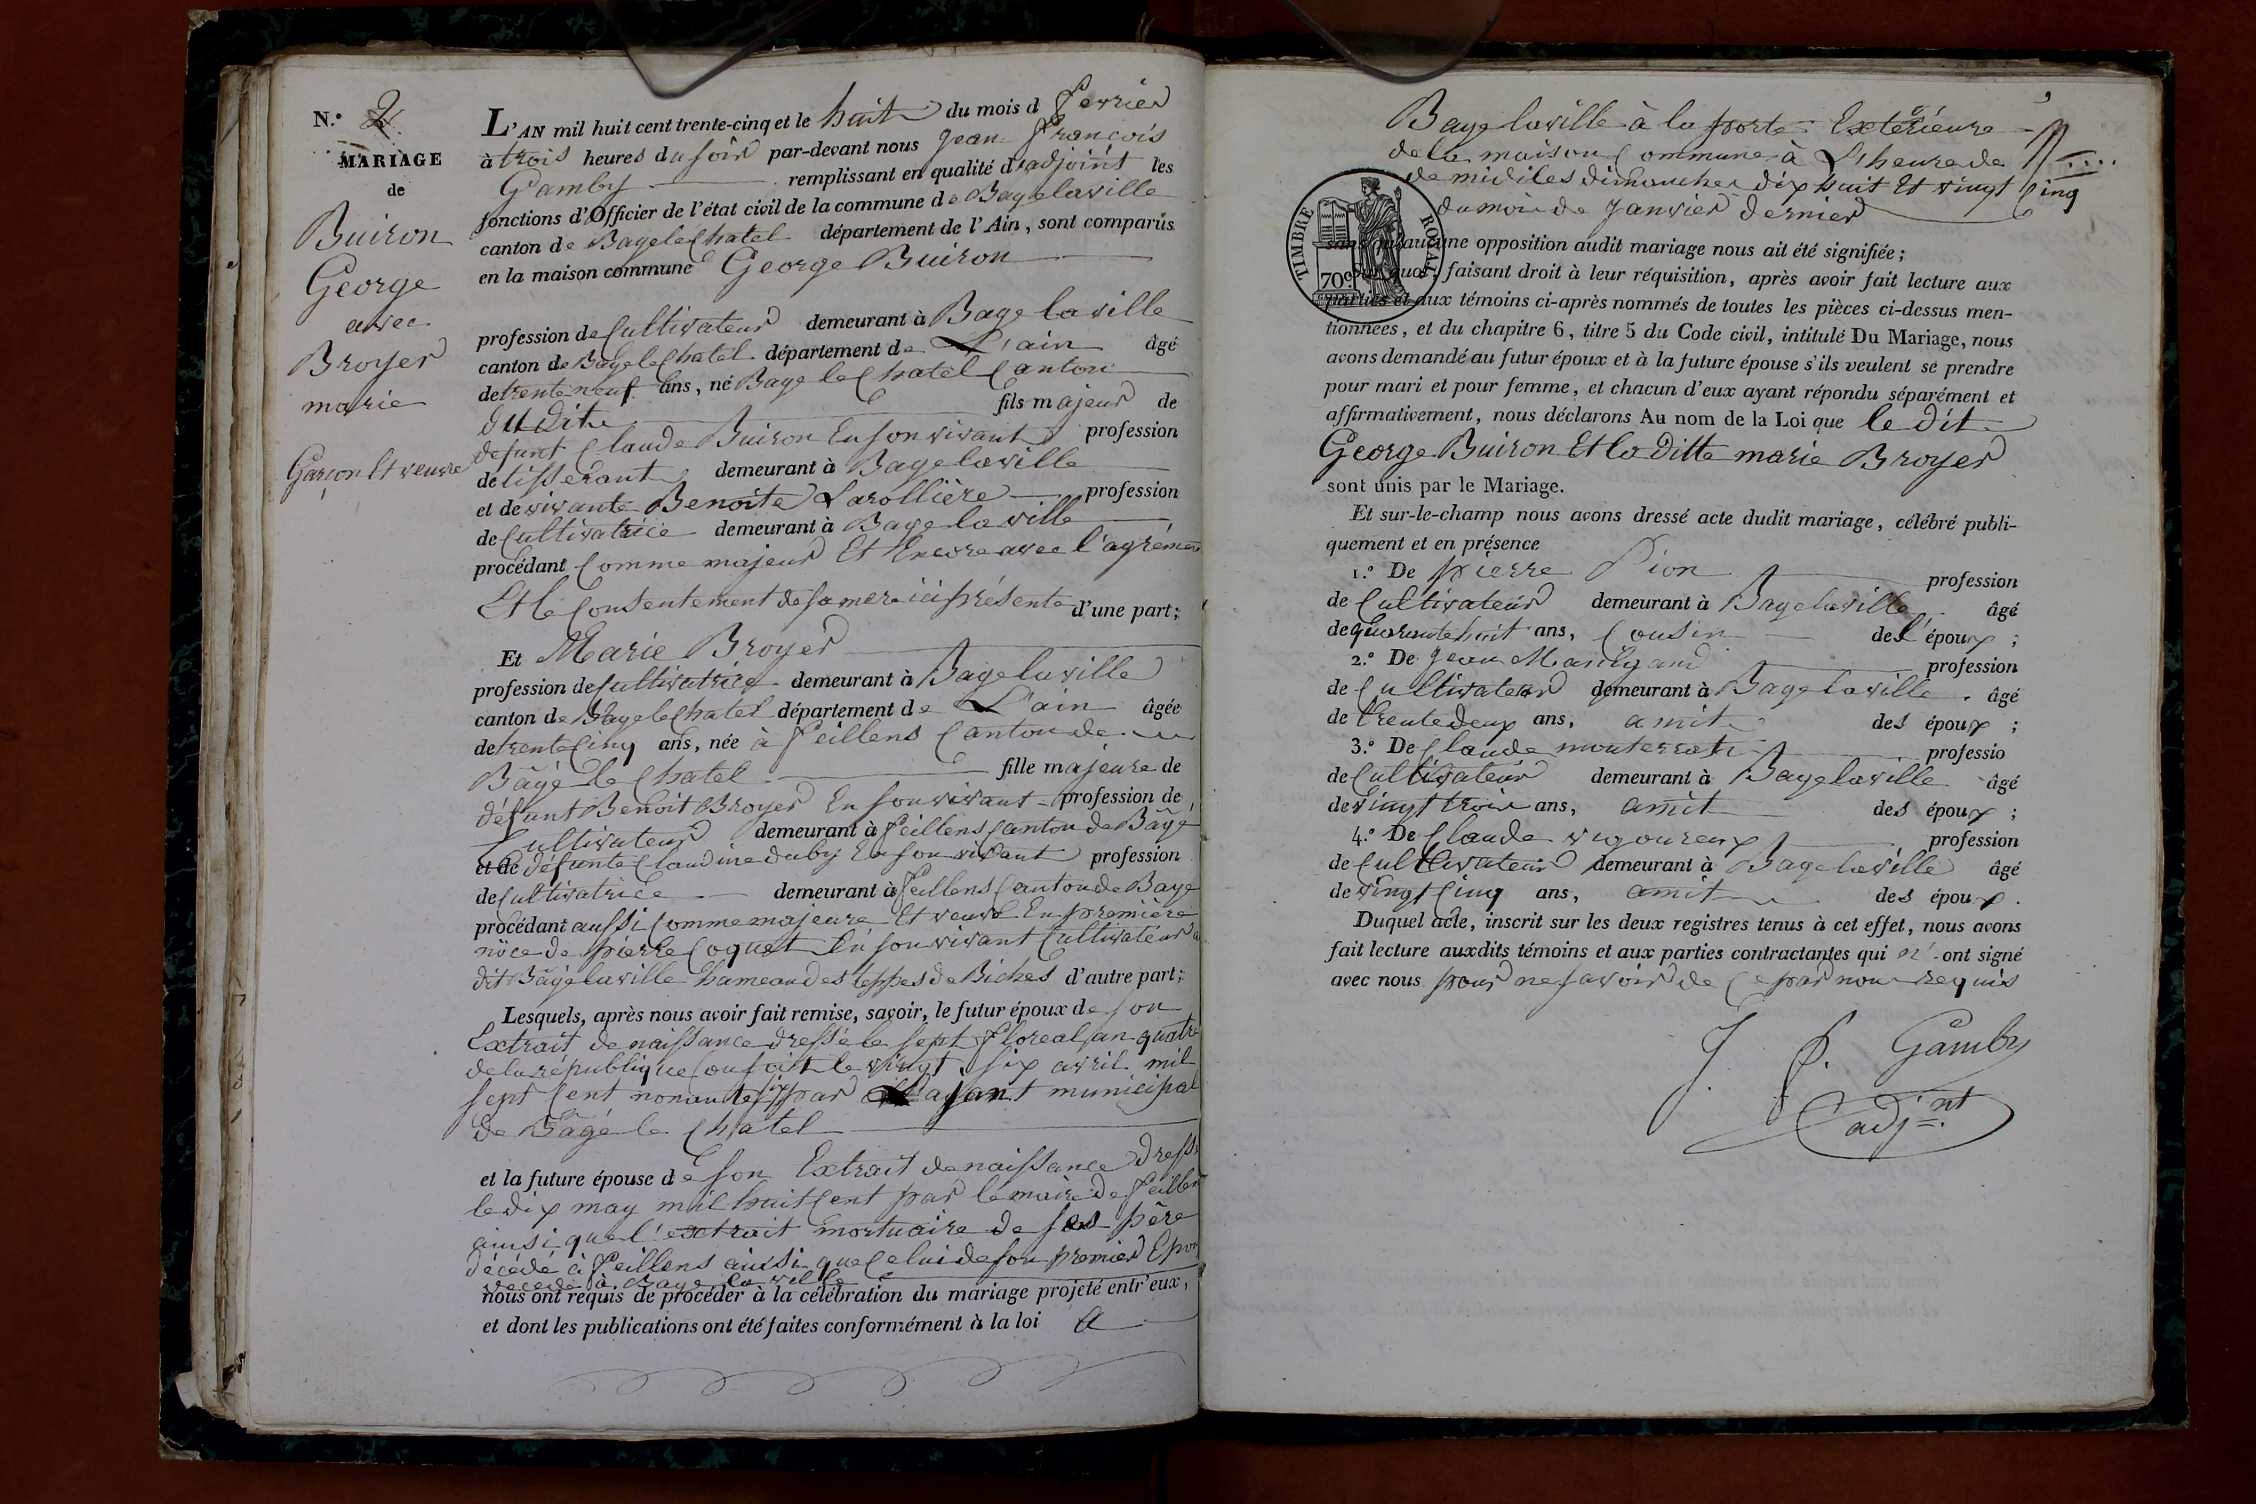 N.° 2
MARIAGE
de
Buiron
George
avec
Broyer
marie
Garçon Et veuve
L'AN mil huit cent trente-cinq et le huit du mois d fevrier
à trois heures du soir par-devant nous Jean François
Gamby remplissant en qualité d'adjoint les
fonctions d'Officier de l'état civil de la commune de Bagelaville
canton de Bagele Chatel département de l'Ain, sont comparus
en la maison commune George Buiron
profession de Cultivateur demeurant à Bage la ville
canton de Bagele Chatel département de L'ain âgé
de trente neuf ans, né Bage le Chatel Canton
du dit fils majeur de
defunt Claude Buiron En son vivant profession
de tisserant demeurant à Bagelaville
et de vivante Benoite Larollière profession
de Cultivatrice demeurant à Bage la ville
procédant Comme majeur Et Encore avec l'agrément
Et le Consentement de sa mere ici présente d'une part;
Et Marie Broyer
profession de Cultivatrice demeurant à Bagelaville
canton de Bagele Chatel département de L'ain âgée
de trente Cinq ans, née à feillens Canton de
Bâgé le Chatel fille majeure de
défunt Benoit Broyer En son vivant profession de
Cultivateur demeurant à feillens Canton de Bâgé
et de défunte Claudine duby En son vivant profession
de Cultivatrice demeurant à feillens Canton de Bage
procédant aussi Comme majeure Et veuve En première
nôce de pierre Coquet En son vivant Cultivateur a
dit Bâgé laville hameau des teppes de Biches d'autre part;
Lesquels, après nous avoir fait remise, savoir, le futur époux de son
Extrait de naissance dressé le sept floreal an quatre
de la république Courant le vingt six avril mil
sept Cent nonante six par L'agant municipal
de Bâgé le Chatel
et la future épouse de son Extrait de naissance dressé
le dix may mil huit Cent par le maire de feillens
ainsi que l'extrait mortuaire de ses père
décédé à feillens aussi que Celui de son premier Epoux
decede à Bage la ville
nous ont requis de procéder à la célébration du mariage projeté entr'eux,
et dont les publications ont été faites conformément à la loi a
Bage laville à la porte Extérieure
de la maison Commune à L'heure de
de midi les dimanches dix huit Et vingt Cinq
du mois de Janvier dernier
TIMBRE ROYAL
70 c.
sans qu'aucune opposition audit mariage nous ait été signifiée;
Sur quoi, faisant droit à leur réquisition, après avoir fait lecture aux
parties et aux témoins ci-après nommés de toutes les pièces ci-dessus men-
tionnées, et du chapitre 6, titre 5 du Code civil, intitulé Du Mariage, nous
avons demandé au futur époux et à la future épouse s'ils veulent se prendre
pour mari et pour femme, et chacun d'eux ayant répondu séparément et
affirmativement, nous déclarons Au nom de la Loi que le dit
George Buiron Et la Ditte marie Broyer
sont unis par le Mariage.
Et sur-le-champ nous avons dressé acte dudit mariage, célébré publi-
quement et en présence
1.° De pierre Pion profession
de Cultivateur demeurant à Bagelaville âgé
de quarante huit ans, Cousin de l'époux;
2.° De Jean Marchand profession
de Cultivateur demeurant à Bagelaville âgé
de trente deux ans, amit des époux;
3.° De Claude monterrat profession
de Cultivateur demeurant à Bagelaville âgé
de vingt trois ans, amit des époux;
4.° De Claude vigoureux profession
de Cultivateur demeurant à Bagelaville âgé
de vingt Cinq ans, amit des époux.
Duquel acte, inscrit sur les deux registres tenus à cet effet, nous avons
fait lecture auxdits témoins et aux parties contractantes qui n'ont signé
avec nous pour ne savoir de Ce par nous requis
J. f. Gamby
adj.nt